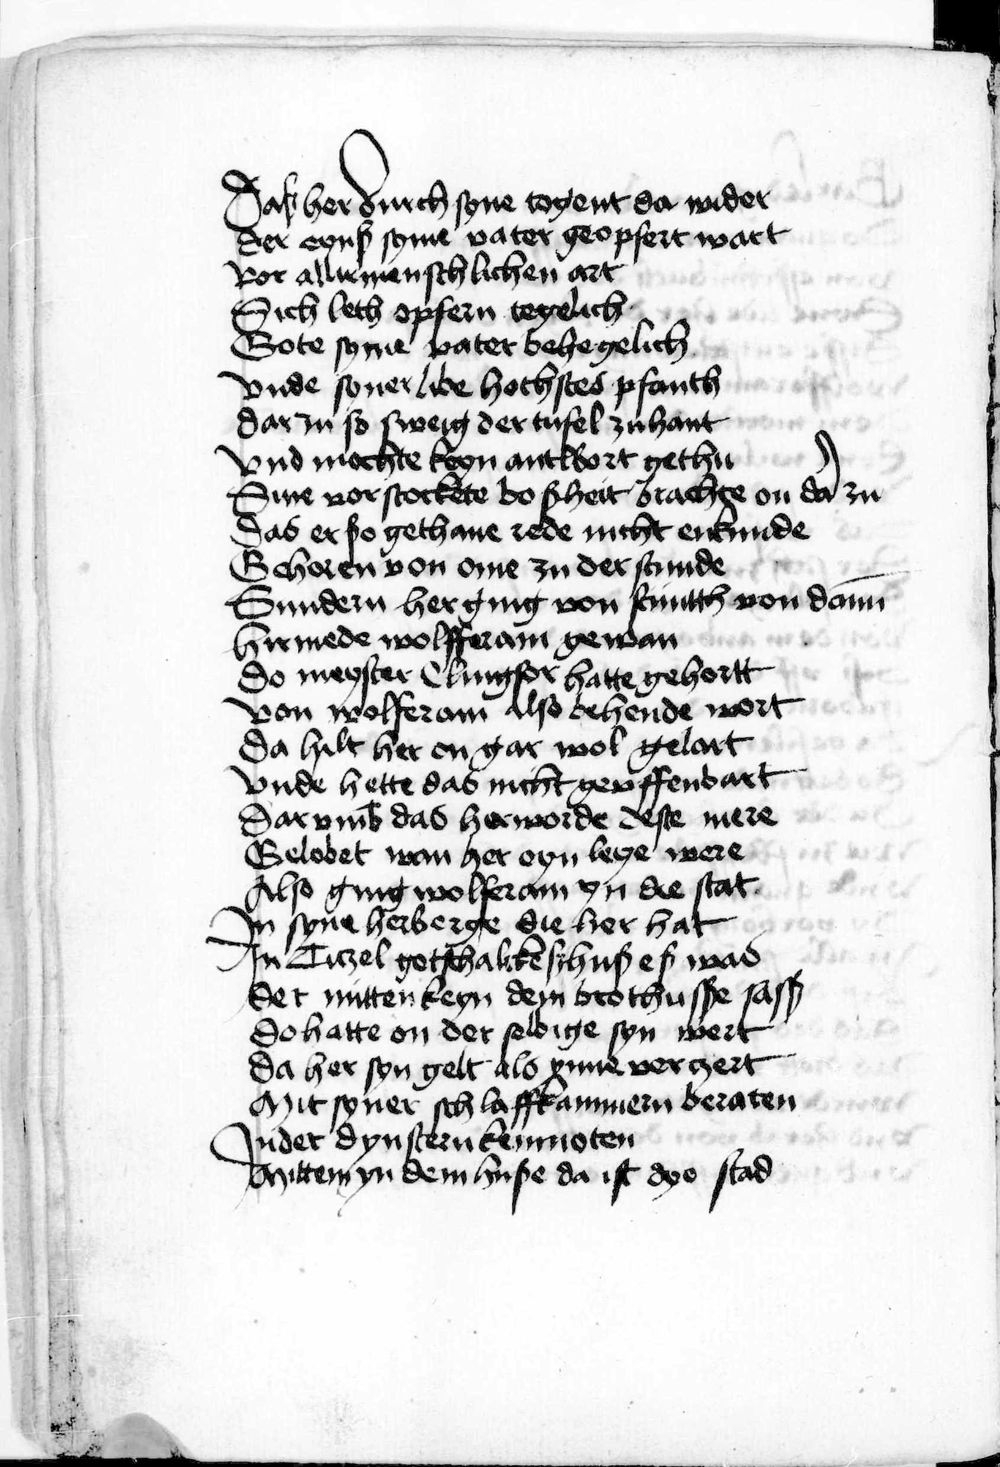 Daß her durch syne togent da wider
der eynß syme vater geopfert wart
vor allir menschlichen art
Sich leth opfern tegelich
Gote syme vater behegelich
vnde syner libe hochstes pfanth
dar zu so sweig der tufel zuhant
vnd mochte keyn antwort gethu
Sine vorstockete boßheit brachte on da zu
das er so gethane rede nicht enkunde
Gehoren von ome zu der stunde
Sundern her ging von stuntth von dann
hirmede wolfferam gewan
do meyster Clingsor hatte gehortt
von wolferam also behende wort
da hilt her en gar wol gelart
vnde hette das nicht geuffenbart
Dar vmb das her worde deste mere
Gelobet wan her eyn leye were
Also ging wolferam yn die stat
In syne herberge die her hat
In Titzel gotschalken hus eß was
der mitten keyn dem brothusse saß
do hatte on der selbige syn wert
da her syn gelt als ynne verzert
Mit syner schlaffkammern beraten
In der dynstern kemnoten
Mitten yn dem huse da ist dye stad